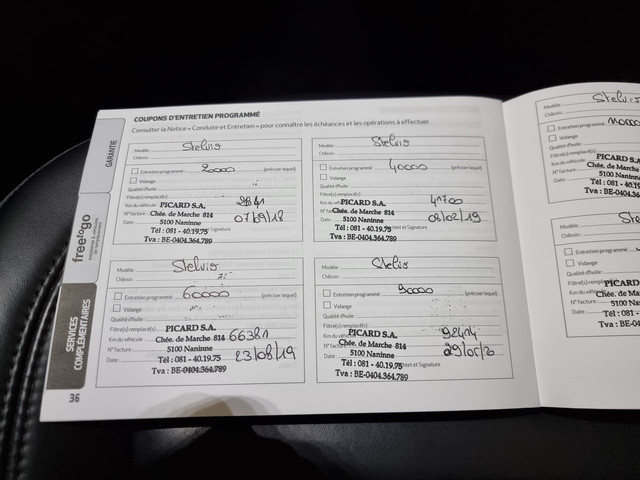 COUPONS D'ENTRETIEN PROGRAMMÉ
Consulter la Notice « Conduite et Entretien » pour connaître les échéances et les opérations à effectuer.
GARANTIE
free to go
SERVICES
COMPLÉMENTAIRES
Modèle Stelvio
Châssis
Entretien programmé 20000 (préciser lequel)
Vidange
Qualité d'huile
Filtre(s) remplacé(s)
Km du véhicule PICARD S.A.
N° facture Chée. de Marche 814
Date 5100 Naninne 07/09/18
Tél : 081 - 40.19.75 Signature
Tva : BE-0404.364.789
Modèle Stelvio
Châssis
Entretien programmé 40000 (préciser lequel)
Vidange
Qualité d'huile
Filtre(s) remplacé(s)
Km du PICARD S.A. 41700
N° Chée. de Marche 814
Date 5100 Naninne 02/19
Tél : 081 - 40.19.75 et Signature
Tva : BE-0404.364.789
Modèle Stelvio
Châssis
Entretien programmé 60000 (préciser lequel)
Vidange
Qualité d'huile
Filtre(s) remplacé(s)
PICARD S.A.
Km du véhicule Chée. de Marche 814 66381
N° facture 5100 Naninne
Date Tél : 081 - 40.19.75 23/08/19
Tva : BE-0404.364.789
Modèle Stelvio
Châssis
Entretien programmé 90000 (préciser lequel)
Vidange
Qualité d'huile
Filtre(s) remplacé(s)
PICARD S.A. 92414
Km du Chée. de Marche 814
N° facture 5100 Naninne
Date Tél : 081 - 40.19.75 et Signature
Tva : BE-0404.364.789
36
Modèle Stelvio
Châssis
Entretien programmé
Vidange
Qualité d'huile
Filtre(s) remplacé(s)
Km du véhicule PICARD S.A.
N° facture Chée. de Marche
Date 5100 Nanin
Tél : 081 - 40.19
Tva : BE-0404.36
Modèle
Châssis
Entretien programmé
Vidange
Qualité d'huile
Filtre(s) remplacé(s)
Km du véh PICARD S.A
N° facture Chée. de Ma
Date 5100 Na
Tél : 081 -
Tva : BE-04